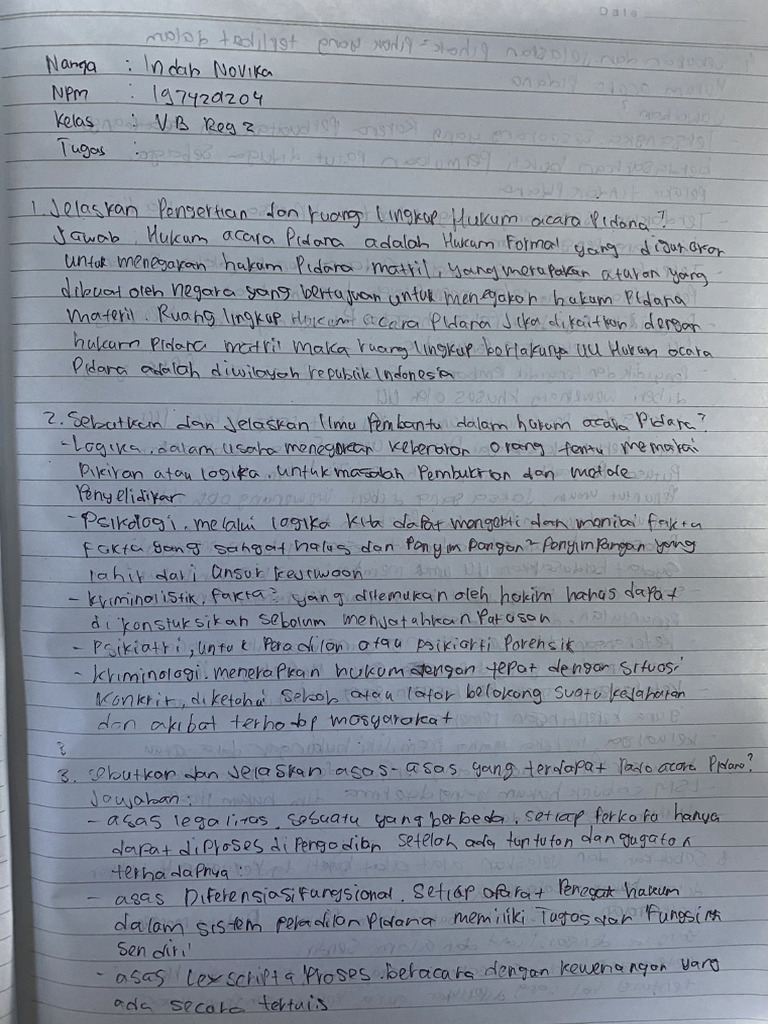 Nama : Indah Novika
NPM : 197420204
Kelas : VB Reg 2
Tugas :
1. Jelaskan Pengertian dan ruang lingkup Hukum acara Pidana?
Jawab. Hukum acara Pidana adalah Hukum Formal yang digunakan
untuk menegakan hukum Pidana matril, yang merupakan aturan yang
dibuat oleh negara yang bertujuan untuk menegakan hukum Pidana
materil. Ruang lingkup Hukum acara Pidana Jika dikaitkan dengan
hukum Pidana matril maka ruang lingkup berlakunya UU Hukum acara
Pidana adalah diwilayah republik Indonesia
2. Sebutkan dan Jelaskan Ilmu Pembantu dalam hukum acara Pidana?
- Logika, dalam usaha menegakan kebenaran orang tentu memakai
Pikiran atau logika, untuk masalah Pembuktian dan metode
Penyelidikan
- Psikologi, melalui logika kita dapat mengerti dan menilai fakta
fakta yang sangat halus dan Penyimpangan²-Penyimpangan yang
lahir dari unsur kejiwaan
- kriminalistik, fakta² yang ditemukan oleh hakim harus dapat
di konstuksikan sebelum menjatahkan Patusan.
- Psikiatri, untuk Peradilan atau psikiarti Forensik
- kriminologi. menerapkan hukum dengan tepat dengan situasi
konkrit, diketahui sebab atau latar belakang suatu kejahatan
dan akibat terhadap masyarakat
3. Sebutkan dan Jelaskan asas-asas yang terdapat Pada acara Pidana?
Jawaban :
- asas legalitas, sesuatu yang berbeda, setiap Perkara hanya
dapat diproses di Pengadilan setelah ada tuntutan dan gugatan
terhadapnya.
- asas Diferensiasi fungsional. Setiap aparat Penegak hukum
dalam sistem peradilan Pidana memiliki Tugas dan Fungsi
sendiri
- asas lex scripta Proses beracara dengan kewenangan yang
ada secara tertulis